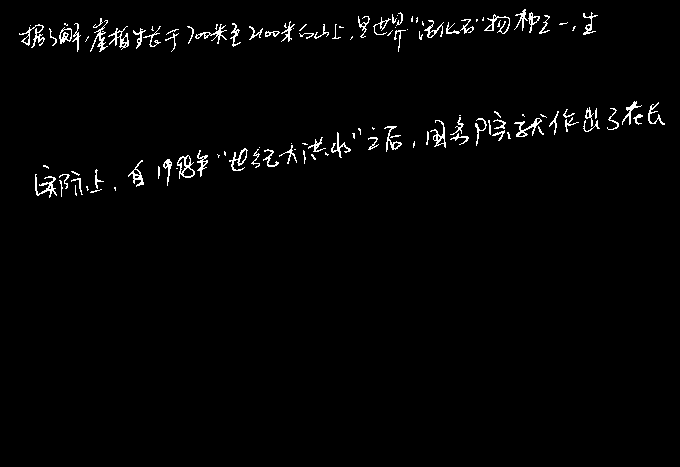 据了解，崖柏生长于700米至2100米的山上，是世界“活化石”物种之一，生
实际上，自1998年“世纪大洪水”之后，国务院就作出了在长